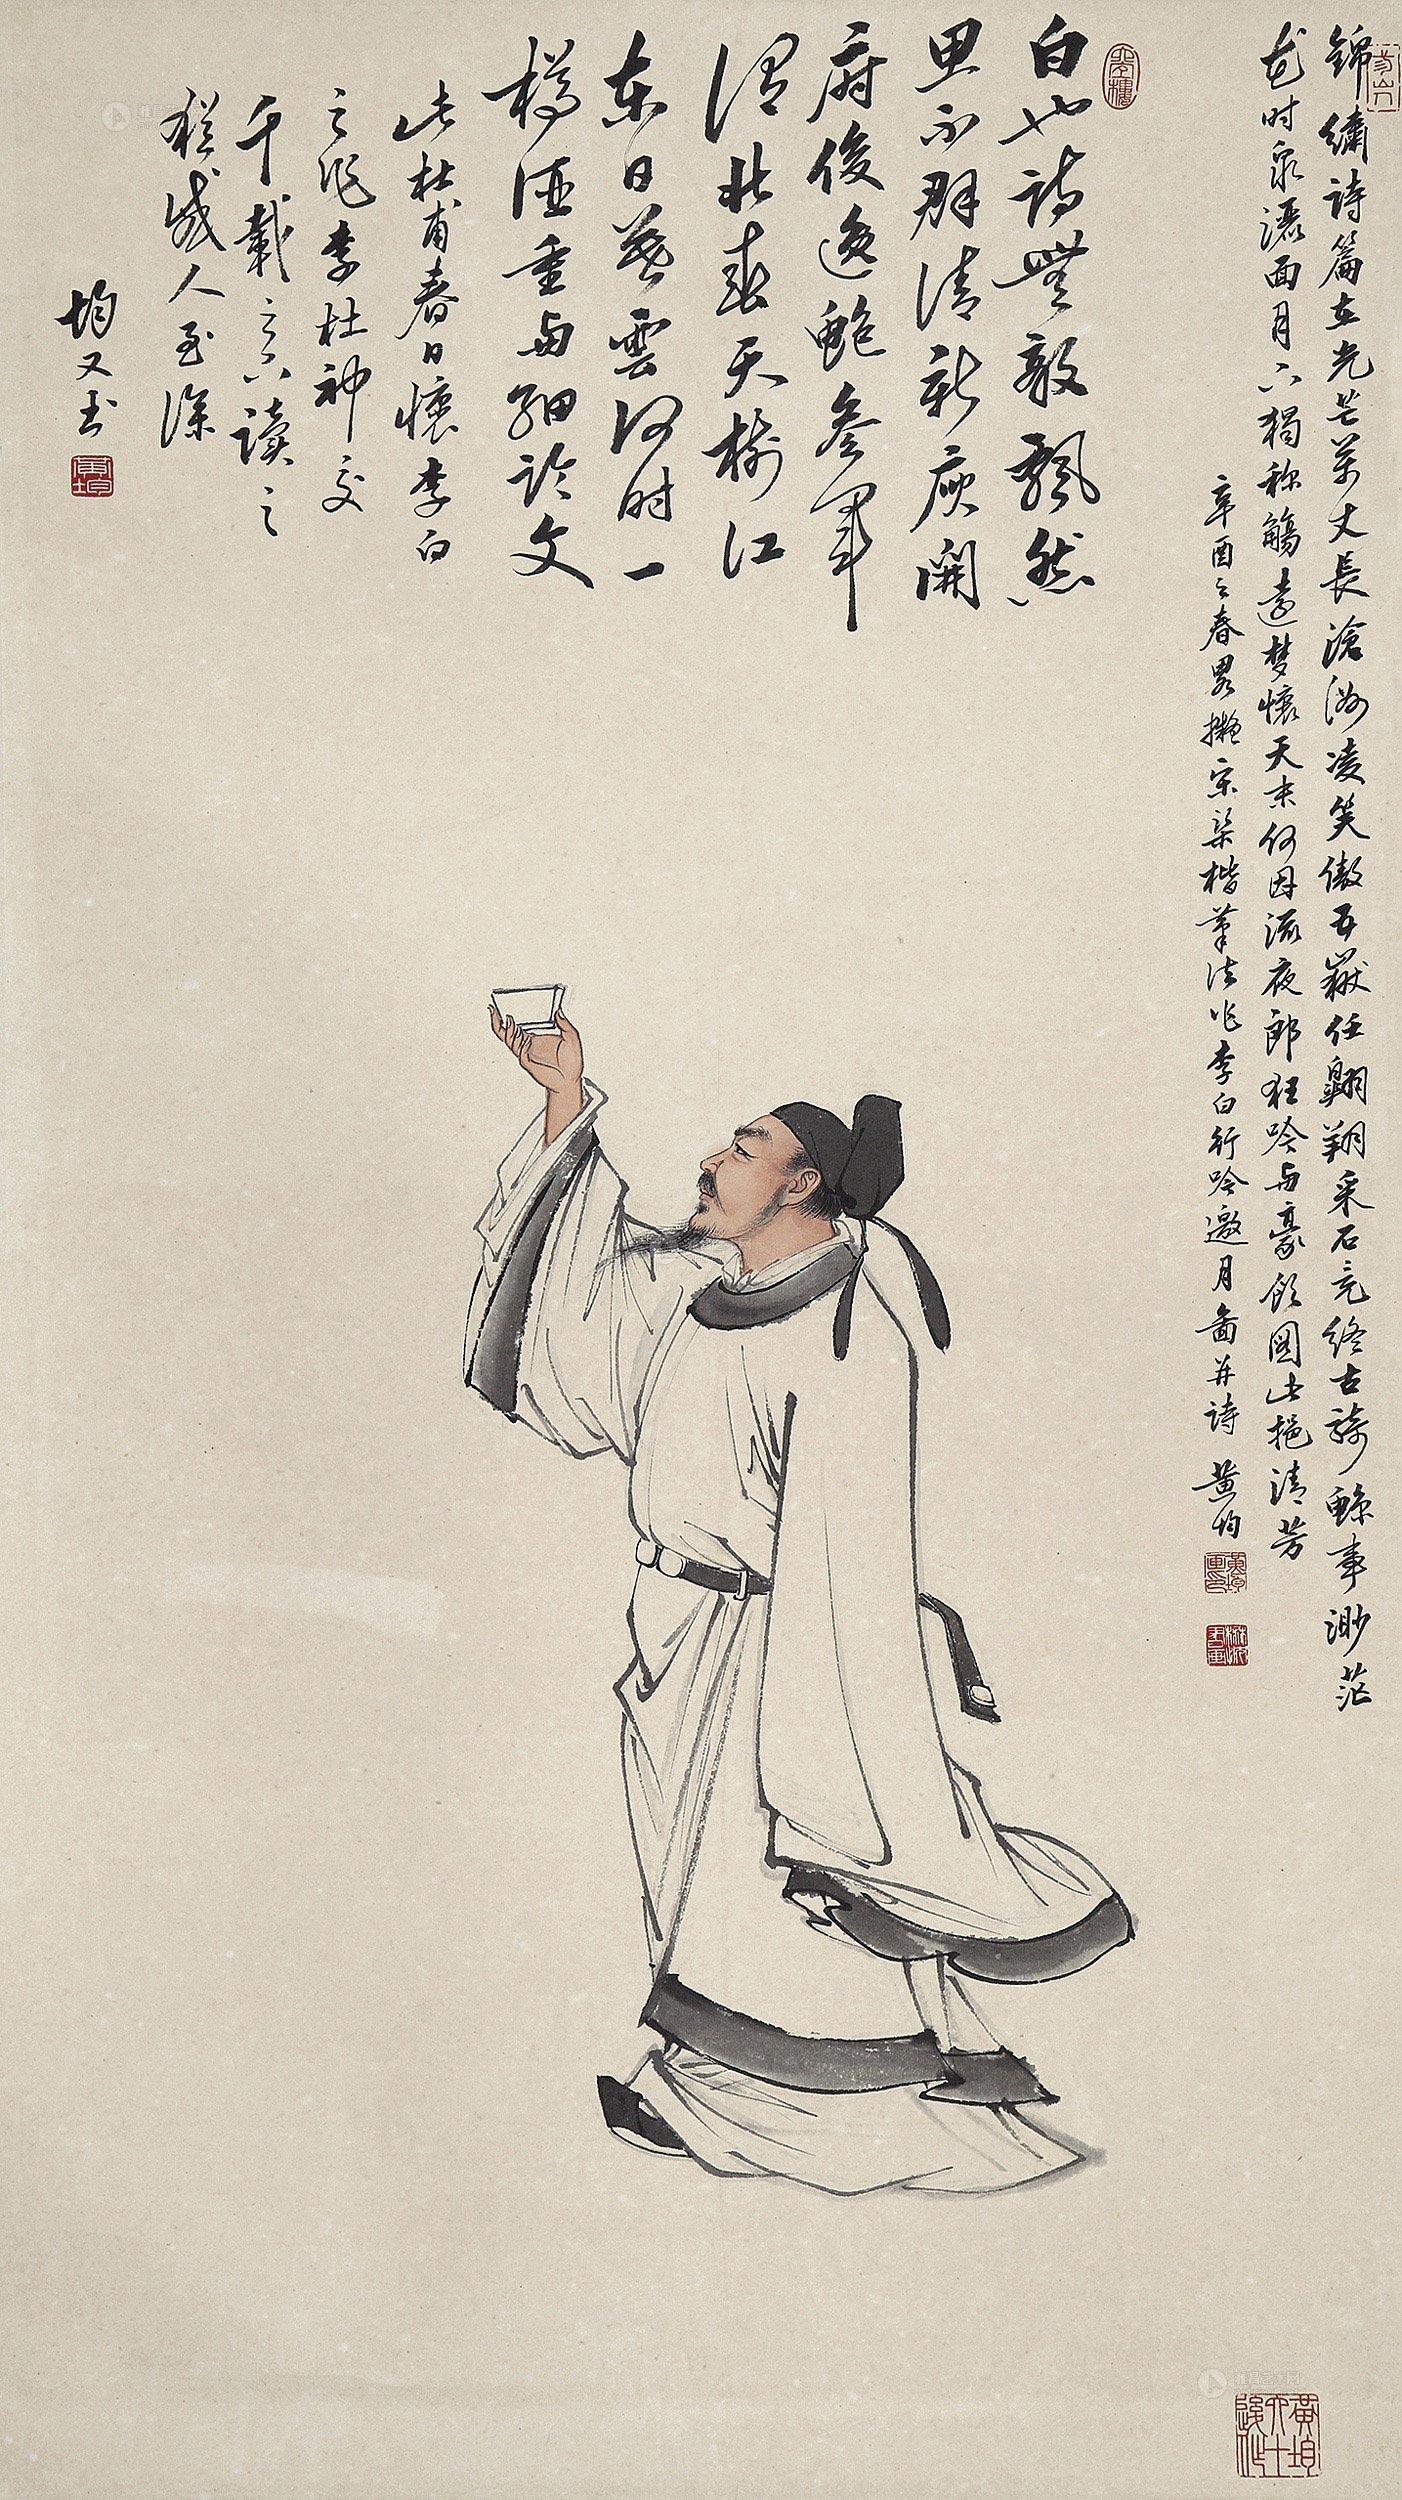 錦繡詩篇在光芒萬丈長滄洲凌笑傲五嶽任翱翔采石亮終古騎鯨事渺茫
花時泉灑面月下獨称觴遠梦懷天末何因流夜郎狂吟与豪飲圖此挹清芳
辛酉之春畧擬宋梁楷筆法作李白行吟邀月圖并詩 黄均
白也詩無敵飄然
思不群清新庾開
府俊逸鮑參軍
渭北春天樹江
東日暮雲何时一
樽酒重与細論文
此杜甫春日懷李白
之作李杜神交
千載之下读之
猶感人至深
均又书